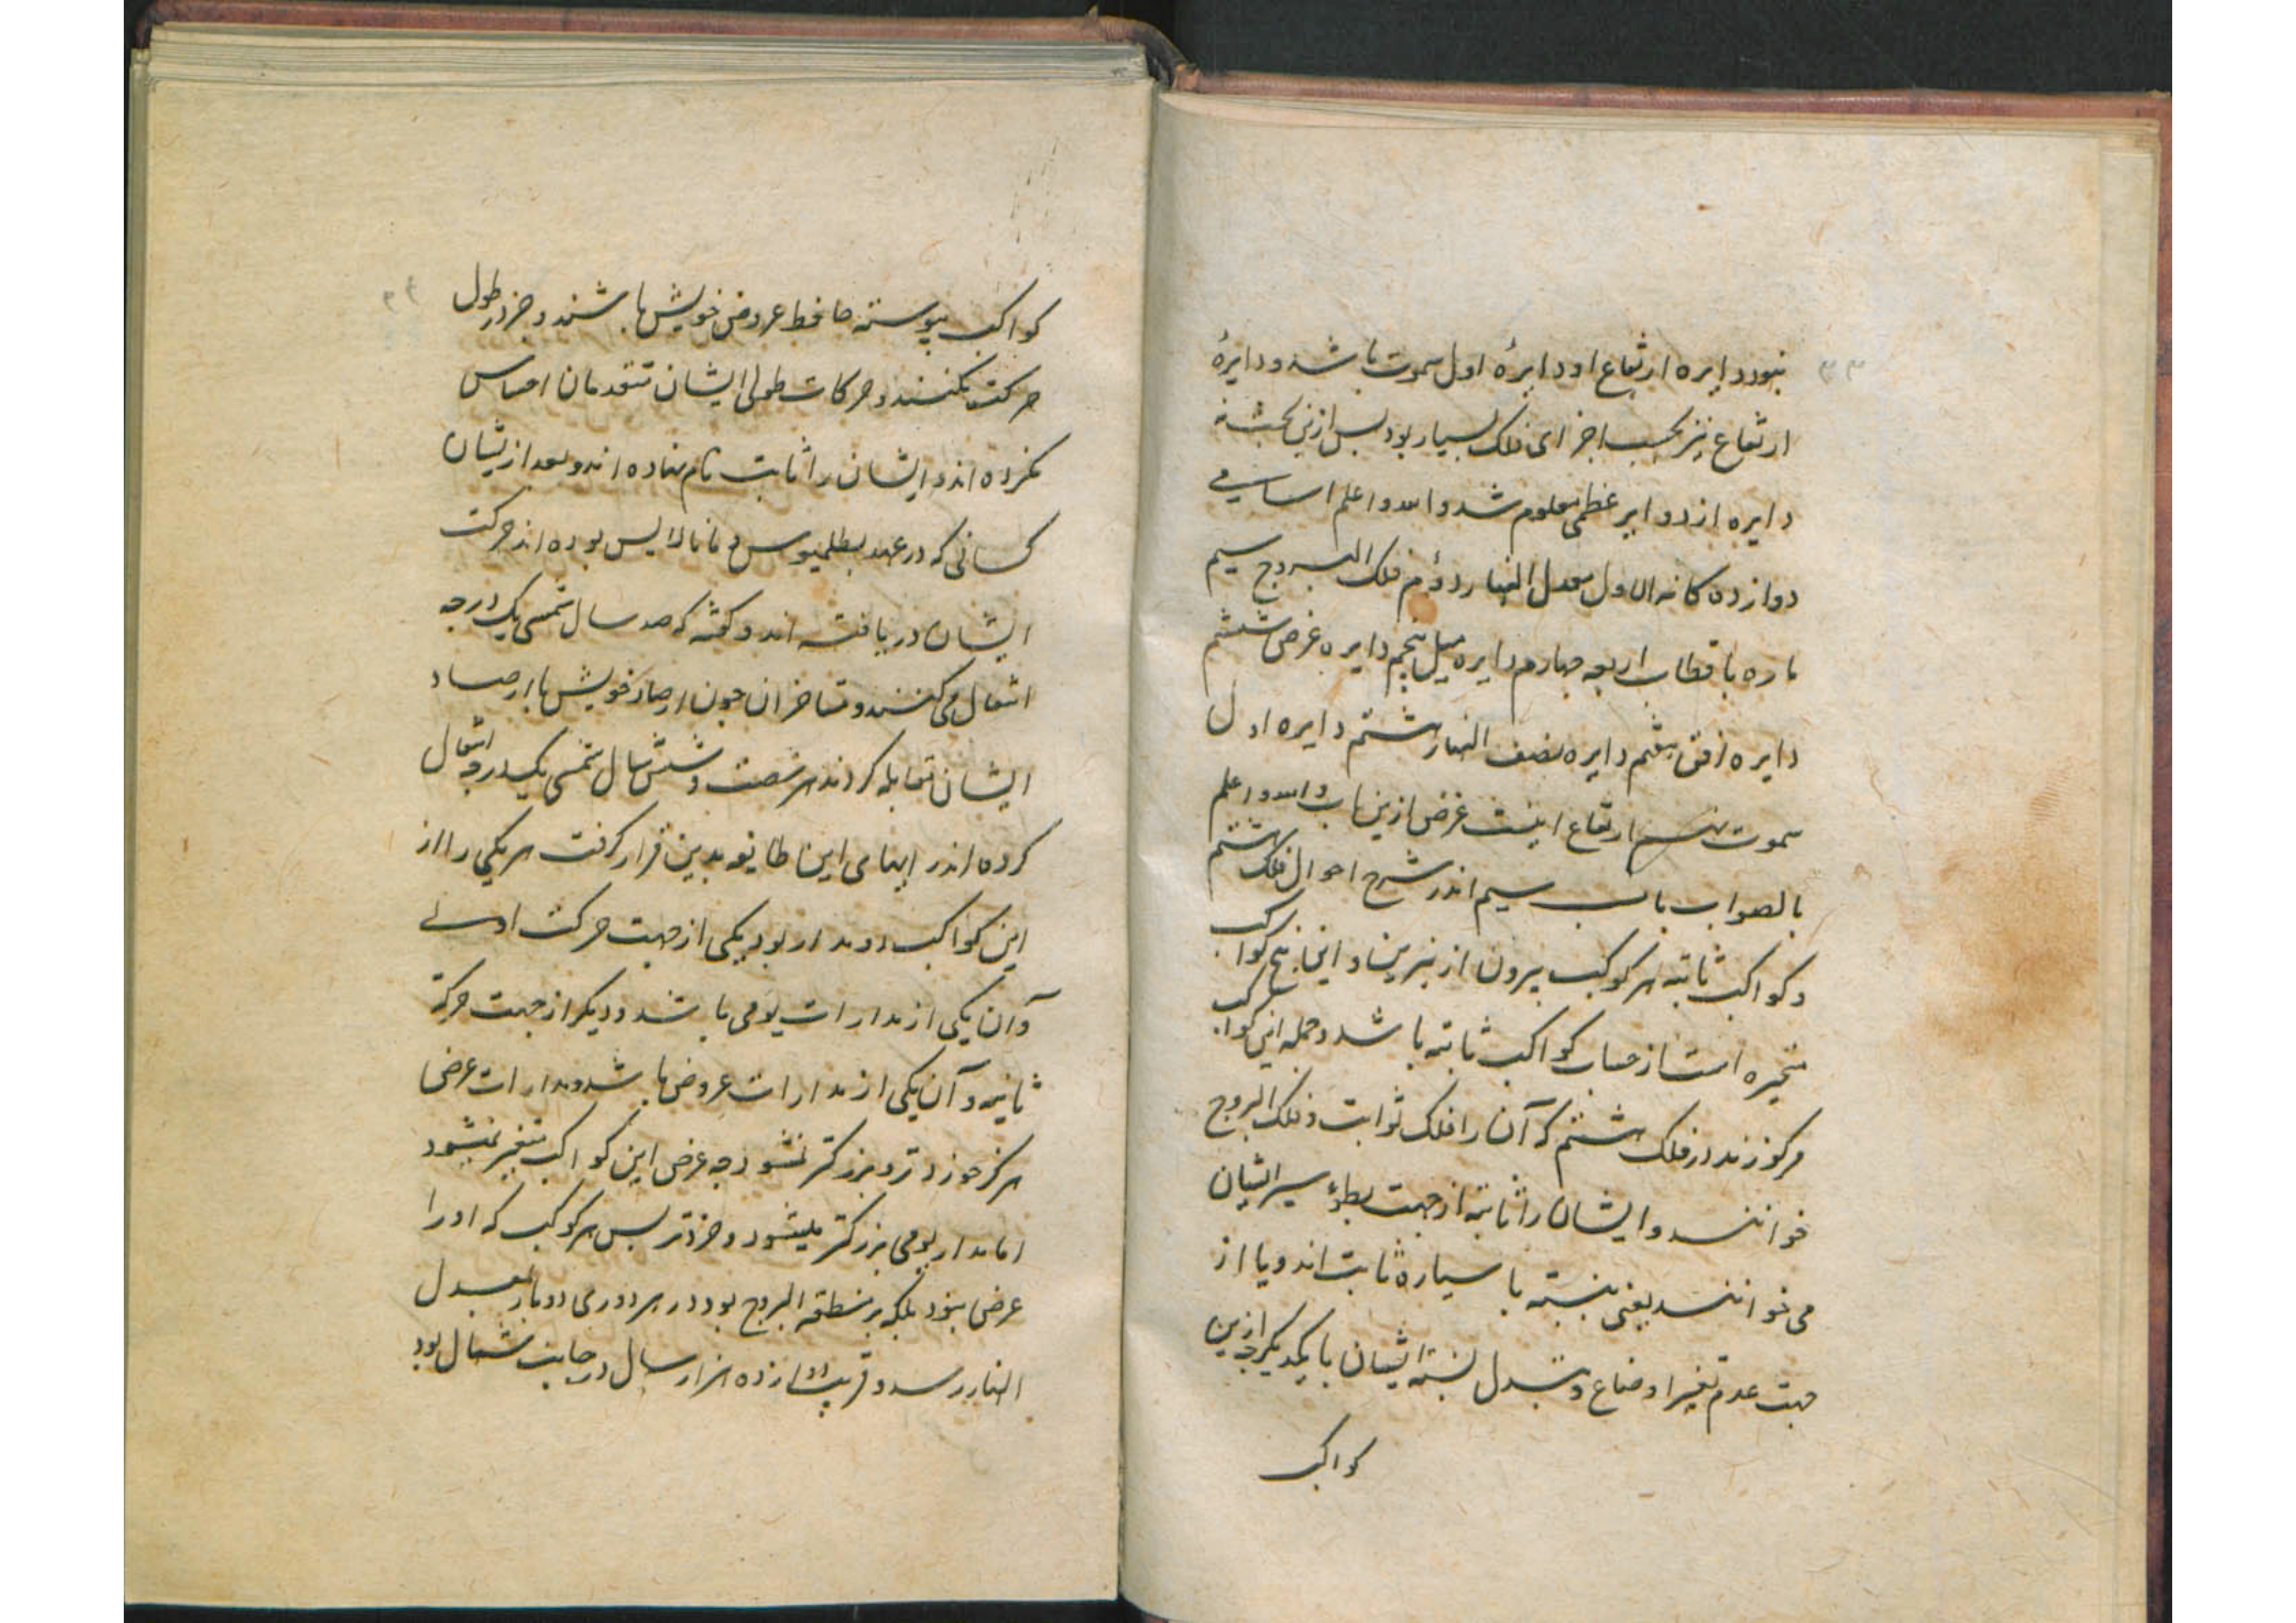 ۳۳
نبود دایره ارتفاع او دایرهٔ اول سموت باشد و دایرهٔ
ارتفاع نیز بحسب اجزای فلک بسیار بود پس ازین بحث نه
دایره از دوایر عظمی معلوم شد والله اعلم اسامی
دوازده کانه الاول معدل النهار دوم فلک البروج سیم
ماره باقطاب اربعه چهارم دایره میل پنجم دایره عرض ششم
دایره افق هفتم دایره نصف النهار هشتم دایره اول
سموت نهم ارتفاع اینست غرض ازین باب والله اعلم
بالصواب باب سیم اندر شرح احوال فلک هشتم
و کواکب ثابته هر کوکب بیرون از نیرین و این پنج کواکب
متحیره است از حساب کواکب ثابته باشد و جمله این کواکب
مرکوزند در فلک هشتم که آن را فلک ثوابت و فلک البروج
خوانند و ایشان را ثابته از جهت بطوء سیر ایشان
می خوانند یعنی بنسبته با سیاره ثابت اند و یا از
جهت عدم تغییر اوضاع و تبدل نسبته ایشان با یکدیگر چه ازین
کواکب
۳۴
کواکب پیوسته حافظ عروض خویش باشند و جز در طول
حرکت نکنند و حرکات طولی ایشان متقدمان احساس
نکرده اند و ایشان را ثابت نام نهاده اند و بعد ازیشان
کسانی که در عهد بطلمیوس و مانالاایس بوده اند حرکت
ایشان دریافته اند و گفته که صد سال شمسی یک درجه
انتقال می کنند و متاخران چون ارصاد خویش با ارصاد
ایشان مقابله کردند هر شصت و شش سال شمسی یکدرجه انتقال
کرده اند رایهای این طایفه بدین قرار گرفت هر یکی را از
این کواکب دو مدار بود یکی از جهت حرکت اولی
و آن یکی از مدارات یومی باشد و دیگر از جهت حرکة
ثانیه و آن یکی از مدارات عروض باشد و مدارات عرضی
هرگز خورد تر و بزرکتر نشود چه عرض این کواکب متغیر نمیشود
اما مدار یومی بزرکتر میشود و خردتر پس هر کوکب که او را
عرض نبود بلکه بر منطقة البروج بود در هر دوری دو بار بمعدل
النهار رسد و قریب دوازده هزار سال در جانب شمال بود